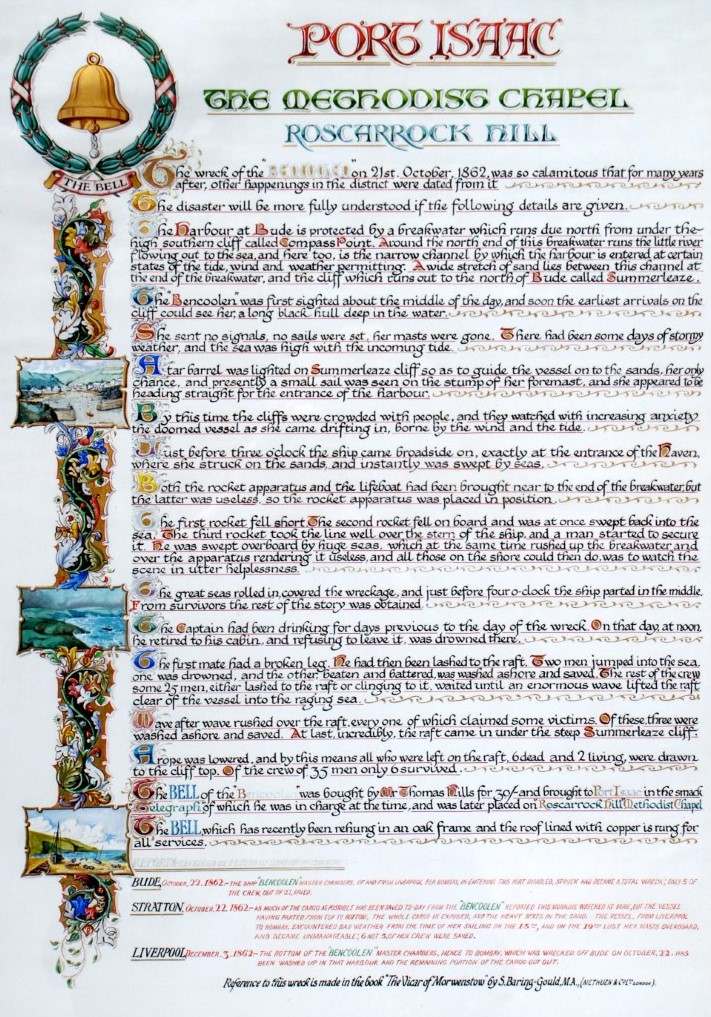 PORT ISAAC
THE METHODIST CHAPEL
ROSCARROCK HILL
THE BELL
The wreck of the " " on 21st. October, 1862, was so calamitous that for many years
after, other happenings in the district were dated from it
The disaster will be more fully understood if the following details are given.
The Harbour at Bude is protected by a breakwater which runs due north from under the
high southern cliff called Compass Point. Around the north end of this breakwater runs the little river
flowing out to the sea, and here too, is the narrow channel by which the harbour is entered at certain
states of the tide, wind and weather permitting. A wide stretch of sand lies between this channel at
the end of the breakwater, and the cliff which runs out to the north of Bude called Summerleaze.
The "Bencoolen" was first sighted about the middle of the day, and soon the earliest arrivals on the
cliff could see her, a long black hull deep in the water.
She sent no signals, no sails were set, her masts were gone. There had been some days of stormy
weather, and the sea was high with the incoming tide.
A tar barrel was lighted on Summerleaze cliff so as to guide the vessel on to the sands, her only
chance, and presently a small sail was seen on the stump of her foremast, and she appeared to be
heading straight for the entrance of the harbour.
By this time the cliffs were crowded with people, and they watched with increasing anxiety
the doomed vessel as she came drifting in, borne by the wind and the tide.
Just before three o'clock the ship came broadside on, exactly at the entrance of the Haven,
where she struck on the sands, and instantly was swept by seas.
Both the rocket apparatus and the lifeboat had been brought near to the end of the breakwater, but
the latter was useless, so the rocket apparatus was placed in position.
The first rocket fell short. The second rocket fell on board and was at once swept back into the
sea. The third rocket took the line well over the stern of the ship, and a man started to secure
it. He was swept overboard by huge seas, which at the same time rushed up the breakwater and
over the apparatus rendering it useless, and all those on the shore could then do, was to watch the
scene in utter helplessness.
The great seas rolled in, covered the wreckage, and just before four o-clock the ship parted in the middle.
From survivors the rest of the story was obtained.
The Captain had been drinking for days previous to the day of the wreck. On that day, at noon,
he retired to his cabin, and refusing to leave it, was drowned there.
The first mate had a broken leg. He had then been lashed to the raft. Two men jumped into the sea,
one was drowned, and the other, beaten and battered, was washed ashore and saved. The rest of the crew
some 25 men, either lashed to the raft or clinging to it, waited until an enormous wave lifted the raft
clear of the vessel into the raging sea.
Wave after wave rushed over the raft, every one of which claimed some victims. Of these, three were
washed ashore and saved. At last, incredibly, the raft came in under the steep Summerleaze cliff.
A rope was lowered, and by this means all who were left on the raft, 6 dead and 2 living, were drawn
to the cliff top. Of the crew of 35 men only 6 survived.
The BELL of the Bencoolen was bought by Mr Thomas Mills for 30/- and brought to Port Isaac in the smack
"Telegraph" of which he was in charge at the time, and was later placed on Roscarrock Hill Methodist Chapel
The BELL, which has recently been rehung in an oak frame and the roof lined with copper is rung for
all services.
REPORTS
BUDE, OCTOBER, 22. 1862.- THE SHIP "BENCOOLEN" MASTER CHAMBERS, OF AND FROM LIVERPOOL FOR BOMBAY, IN ENTERING THIS PORT DISABLED, STRUCK AND BECAME A TOTAL WRECK; ONLY 5 OF
THE CREW, OUT OF 27, SAVED.
STRATTON, OCTOBER, 22. 1862.- AS MUCH OF THE CARGO AS POSSIBLE HAS BEEN SAVED TO-DAY FROM THE "BENCOOLEN" REPORTED THIS MORNING WRECKED AT BUDE, BUT THE VESSEL
HAVING PARTED FROM TOP TO BOTTOM, THE WHOLE CARGO IS EXPOSED, AND THE HEAVY BOXES IN THE SAND. THE VESSEL, FROM LIVERPOOL
TO BOMBAY, ENCOUNTERED BAD WEATHER FROM THE TIME OF HER SAILING ON THE 13TH, AND ON THE 19TH LOST HER MASTS OVERBOARD,
AND BECAME UNMANAGEABLE; 6 NOT 5, OF HER CREW WERE SAVED.
LIVERPOOL, DECEMBER, 3. 1862.- THE BOTTOM OF THE "BENCOOLEN" MASTER CHAMBERS, HENCE TO BOMBAY, WHICH WAS WRECKED OFF BUDE ON OCTOBER, 22. HAS
BEEN WASHED UP IN THAT HARBOUR AND THE REMAINING PORTION OF THE CARGO GOT OUT.
Reference to this wreck is made in the book "The Vicar of Morwenstow" by S. Baring-Gould, M.A., (METHUEN & CO. LTD LONDON).